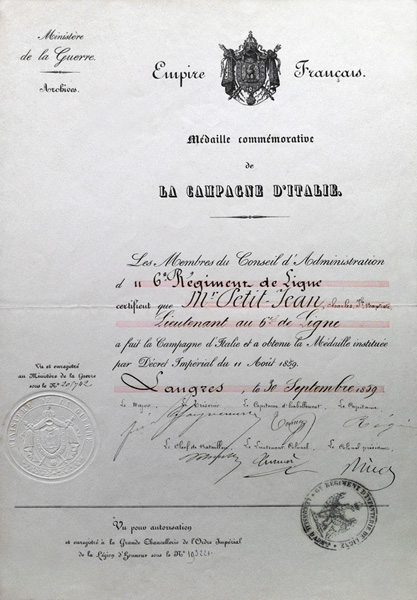 Ministère
de la Guerre.
Archives.
Empire Français.
Médaille commémorative
de
LA CAMPAGNE D'ITALIE.
Les Membres du Conseil d'Administration
d u 6e Régiment de Ligne
certifient que Mr Petit-Jean, Charles, Jn Baptiste,
Lieutenant au 6e de Ligne
a fait la Campagne d'Italie et a obtenu la Médaille instituée
par Décret Impérial du 11 Août 1859.
Langres, le 30 Septembre 1859
Vu et enregistré
au Ministère de la Guerre
sous le No
Le Major. Le Trésorier Le Capitaine d'habillement. Le Capitaine
Le Chef de Bataillon. Le Lieutenant Colonel. Le Colonel président
Vu pour autorisation
et enregistré à la Grande Chancellerie de l'Ordre Impérial
de la Légion d'Honneur sous le No